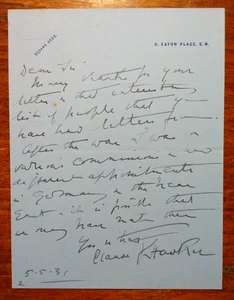 EATON PLACE, S.W.
Dear Sir
Many thanks for your
letter & that interesting
list of people that you
have had letters from.
After the war I was a
various commissions &
different appointments
in Germany & the Near
East & it is possible that
we may have met then
Yours truly
Claude
5-5-31
2